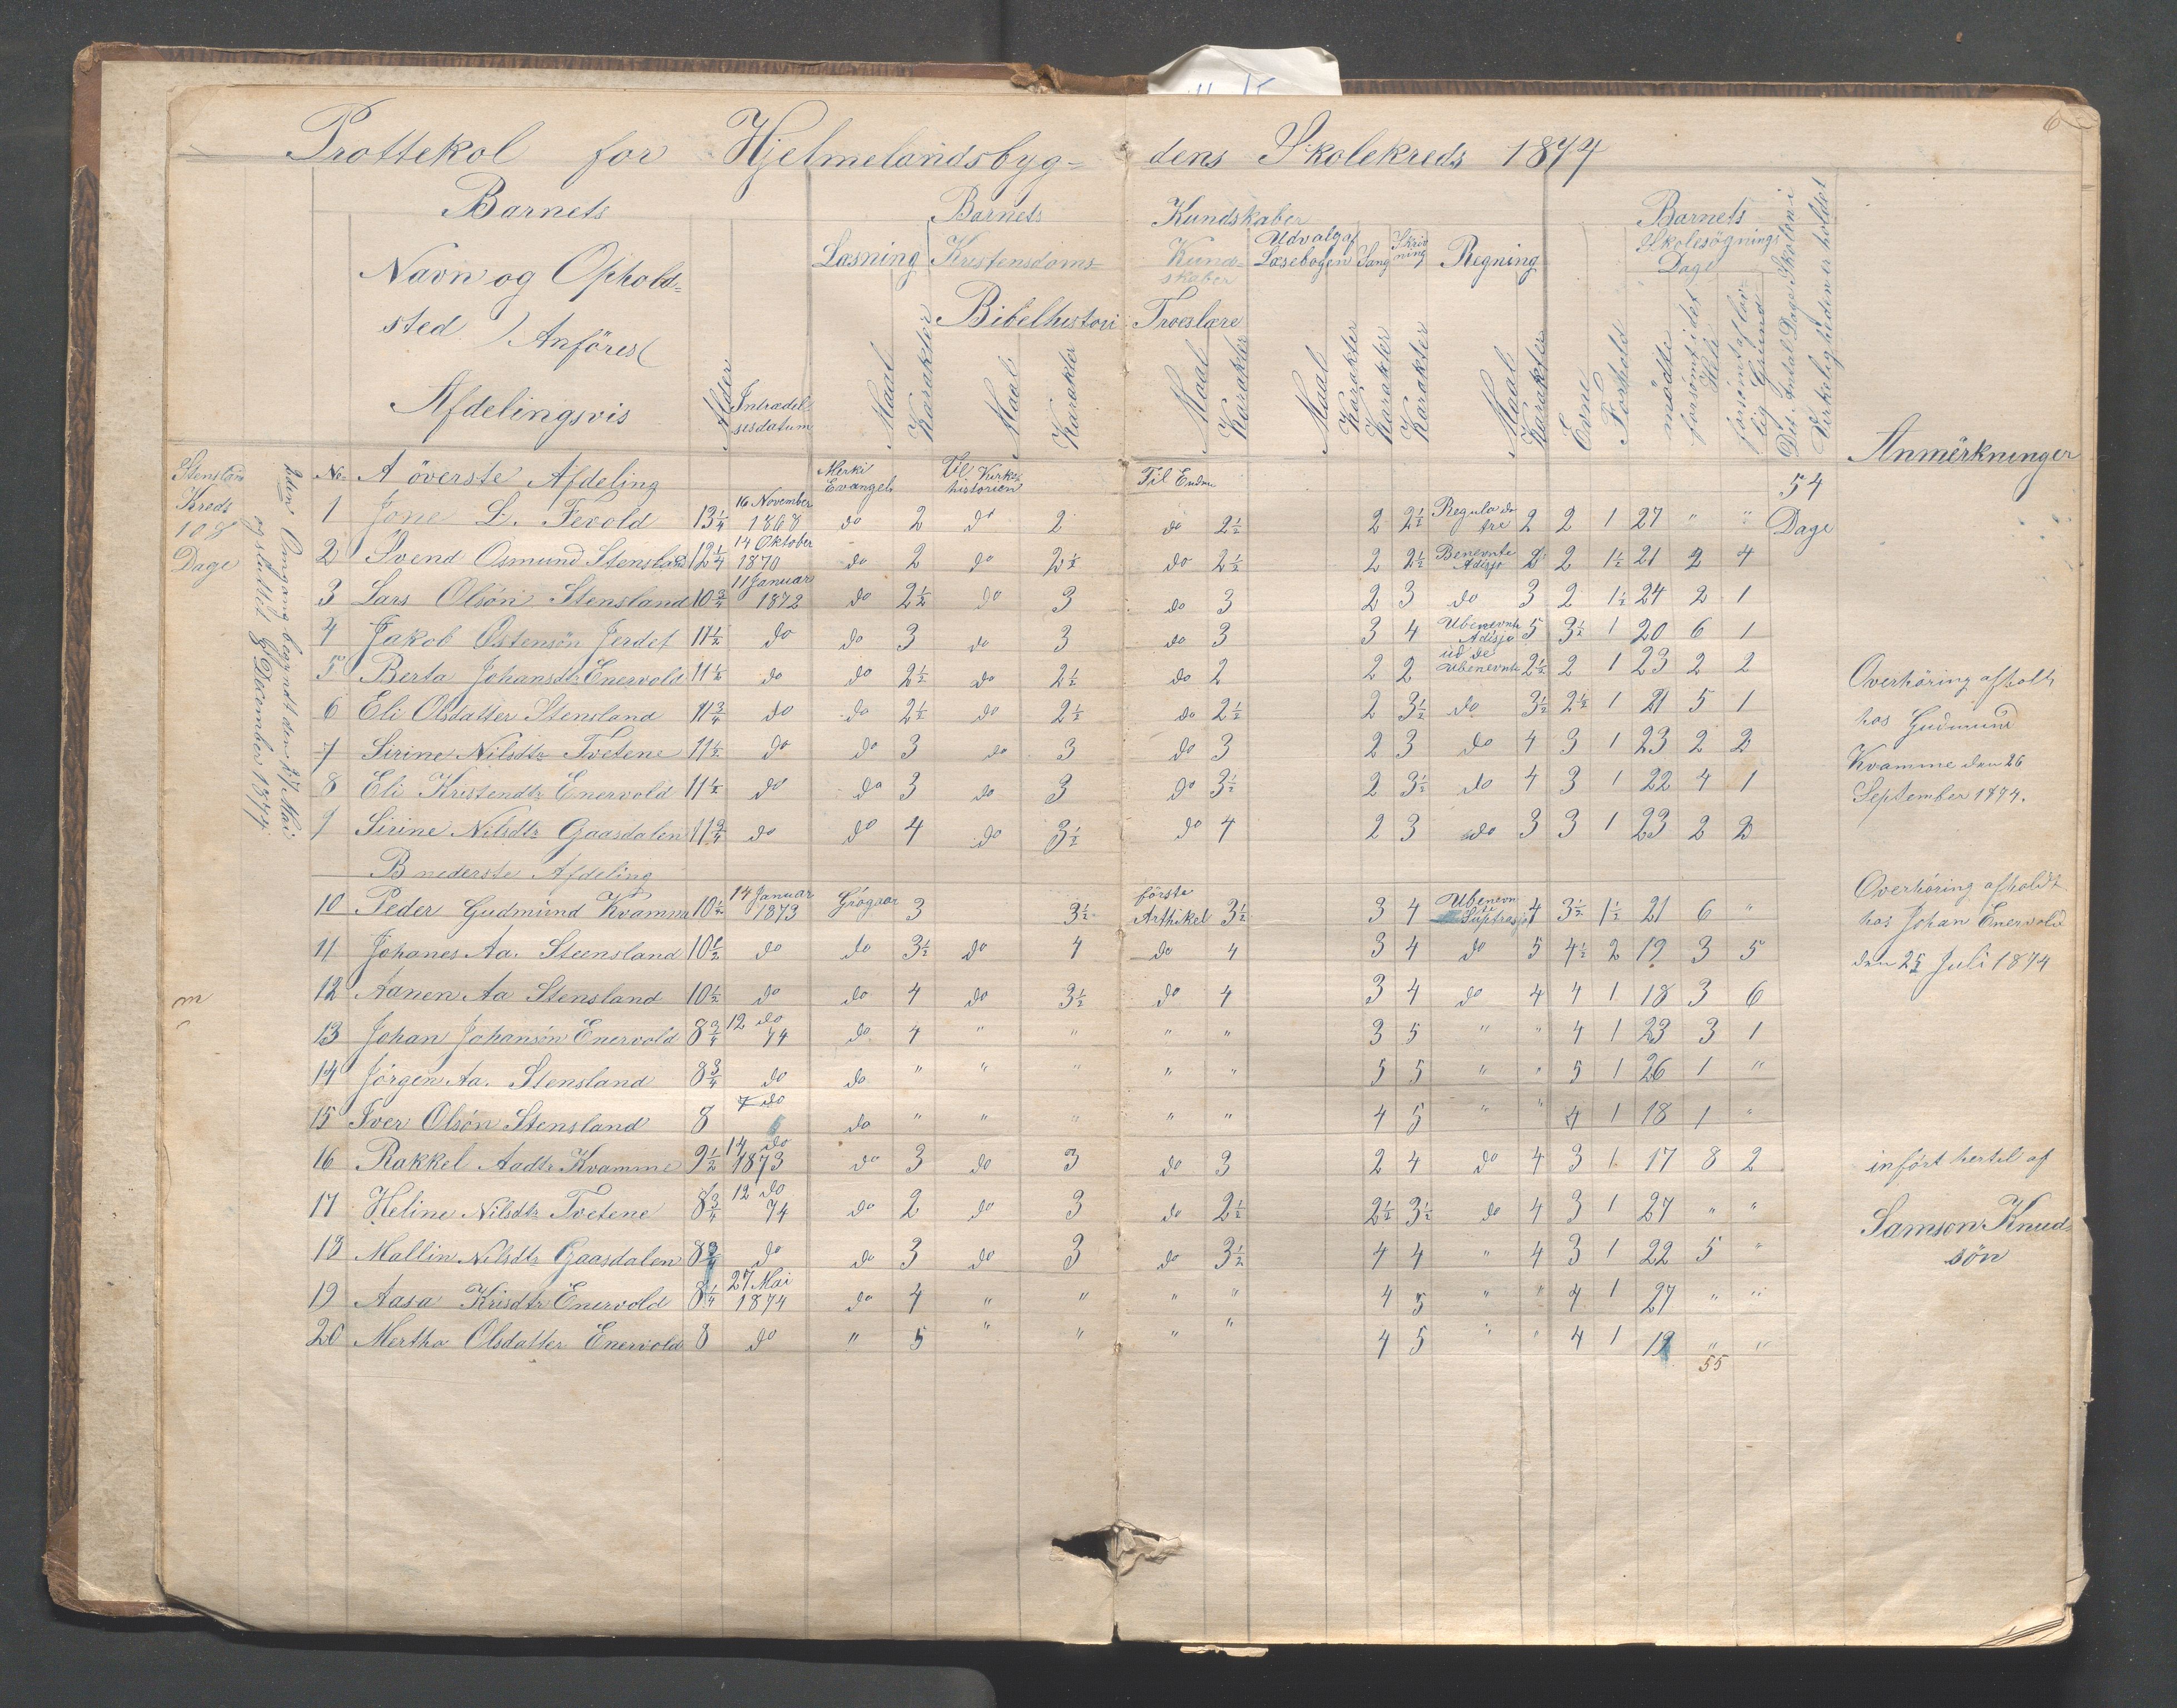 6
Prottekol for Hjelmelandsbyg= dens Skolekreds 1874
Barnets Barnets Kundskaber Barnets
Navn og Ophold= sted )Anföres( Afdelingsvis
Alder
Indtrædel= sesdatum
Læsning Kristendoms= Kund= skaber Udvalg af Læsebogen Sang Skriv ning Regning Skolesögnings Dage
Bibelhistori Troeslære
Maal Karakter Maal Karakter Maal Karakter Maal Karakter Karakter Karakter Maal Karakter Evne Forhold mödte forsömt i det Hele forsömt af lov= lig Grund Det Antal Dage Skolen i Virkeligheden er holdet
Anmerkninger
Stensland Kreds 108 Dage
2den Omgang begyndt den 27 Mai og sluttet 8 December 1874.
No. A överste Afdeling Merki Evangel Til Kirke= historien Til Enden 54 Dage
1 Jone L. Fevold 13 1/4 16 November 1868 do 2 do 2 do 2 1/2 2 2 1/2 Regula de tre 2 2 1 27 " "
2 Svend Osmund Stensland 12 1/4 14 Oktober 1870 do 2 do 2 1/2 do 2 1/2 2 2 1/2 Benevnte Adisjo 2 2 1 1/2 21 2 4
3 Lars Olsön Stensland 10 3/4 11 Januar 1872 do 2 1/2 do 3 do 3 2 3 do 3 2 1 1/2 24 2 1
4 Jakob Østensön Jerdet 11 1/2 do do 3 do 3 do 3 3 4 Ubenevnte Adisjo 5 3 1/2 1 20 6 1
5 Berta Johansdtr Enervold 11 1/2 do do 2 1/2 do 2 1/2 do 2 2 2 ud de Ubenevnte 2 1/2 2 1 23 2 2
6 Eli Olsdatter Stensland 11 3/4 do do 2 1/2 do 2 1/2 do 2 1/2 2 3 1/2 do 3 1/2 2 1/2 1 21 5 1
7 Sirine Nilsdtr Tvetene 11 1/2 do do 3 do 3 do 3 2 3 do 4 3 1 23 2 2
8 Eli Kristendtr Enervold 11 1/2 do do 3 do 3 do 3 1/2 2 3 1/2 do 4 3 1 22 4 1
9 Sirine Nilsdtr Gaasdalen 11 3/4 do do 4 do 3 1/2 do 4 2 3 do 3 3 1 23 2 2
B nederste Afdeling
10 Peder Gudmund Kvamme 10 1/2 14 Januar 1873 3 3 1/2 förste Arthikel 3 1/2 3 4 Ubenevn 4 3 1/2 1 1/2 21 6 "
11 Johanes Aa. Steensland 10 1/2 do do 3 1/2 do 4 do 4 3 4 do 5 4 1/2 2 19 3 5
12 Aanen Aa Stensland 10 1/2 do do 4 do 3 1/2 do 4 3 4 do 4 4 1 18 3 6
13 Johan Johansön Enervold 8 3/4 12 do 74 do 4 " " " " 3 5 " " 4 1 23 3 1
14 Jörgen Aa. Stensland 8 3/4 do do " " " " " 5 5 " " 5 1 26 1 "
15 Iver Olsön Stensland 8 7 do do " " " " " 4 5 " " 4 1 18 1 "
16 Rakkel Aadtr Kvamme 9 1/2 14 do 1873 do 3 do 3 do 3 2 4 do 4 3 1 17 8 2
17 Heline Nilsdtr Tvetene 8 3/4 12 do 74 do 2 do 3 do 2 1/2 2 1/2 3 1/2 do 4 3 1 27 " "
18 Mallin Nilsdtr Gaasdalen 8 3/4 do do 3 do 3 do 3 1/2 4 4 " 4 3 1 22 5 "
19 Aasa Krisdtr Enervold 8 1/4 27 Mai 1874 do 4 " " " " 4 5 " " 4 1 27 " "
20 Mertha Olsdatter Enervold 8 do " 5 " " " " 4 5 " " 4 1 19 " "
55
Overhöring afholt
hos Gudmund
Kvamme den 26
September 1874.
Overhöring afholdt
hos Johan Enervold
den 25 Juli 1874
infört hertil af
Samson Knud=
sön